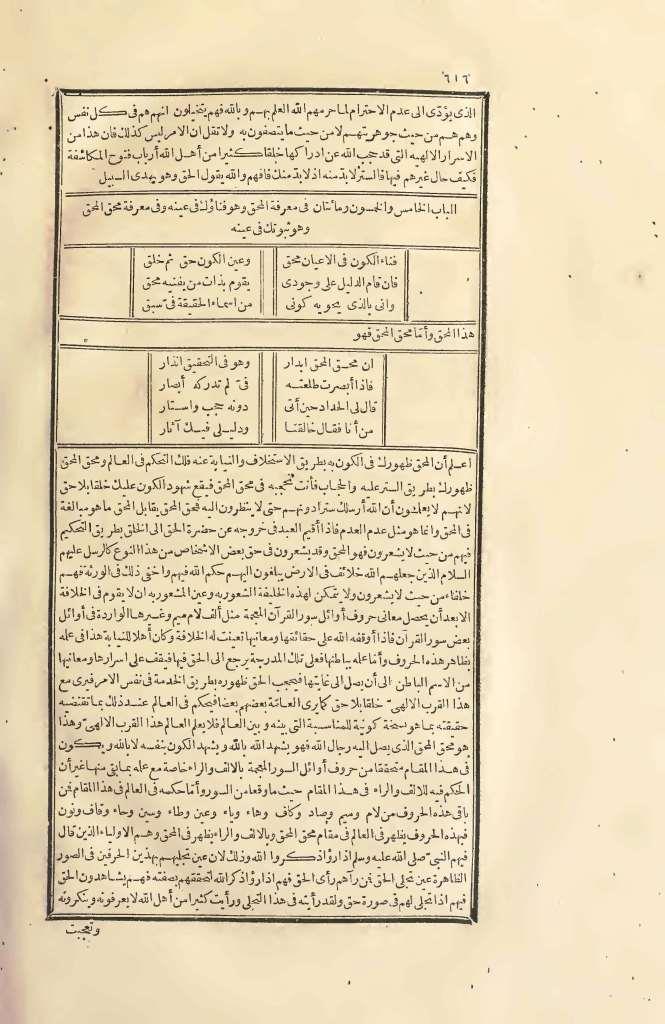 ٦١٦
الذى يؤدّى الى عدم الاحترام لما حرمهم اللّه العلم بهم وبالله فهم يتخيلون انهم هم فى كل نفس
وهم هم من حيث جوهريتهم لا من حيث ما يتصفون به ولا تقل ان الامر ليس كذلك فان هذا من
الاسرار الالهية التى قد حجب اللّه عن ادراكها خلقا كثيرا من أهل اللّه أرباب فتوح المكاشفة
فكيف حال غيرهم فيها فالستر لابدّ منه اذ لابدّ منك فافهم واللّه يقول الحق وهو يهدى السبيل
الباب الخامس والخمسون ومائتان فى معرفة المحق وهو فناؤك فى عينه وفى معرفة محق المحق
وهو ثبوتك فى عينه
فناء الكون فى الاعيان محق وعين الكون حق ثم خلق
فان قام الدليل على وجودى يقوم بذات من يفنيه محق
وانى بالذى يحويه كونى من اسماء الحقيقة فىّ سبق
هذا المحق وأما محق المحق فهو
ان محق المحق ابدار وهو فى التحقيق انذار
فاذا أبصرت طلعته فىّ لم تدركه أبصار
قال لى الحداد حين أتى دونه حجب واستار
من أنا فقال خالقنا ودليلى فيك آثار
اعلم أن المحق ظهورك فى الكون به بطريق الاستخلاف والنيابة عنه فلك التحكم فى العالم ومحق المحق
ظهورك بطريق الستر عليه والحجاب فأنت تحجبه فى محق المحق فيقع شهود الكون عليك خلقا بلا حق
لانهم لا يعلمون أن اللّه أرسلك سترا دونهم حتى لا ينظرون اليه فمحق المحق يقابل المحق ما هو مبالغة
فى المحق وانما هو مثل عدم العدم فاذا أقيم العبد فى خروجه عن حضرة الحق الى الخلق بطريق التحكيم
فيهم من حيث لا يشعرون فهو المحق وقد يشعرون فى حق بعض الاشخاص من هذا النوع كالرسل عليهم
السلام الذين جعلهم اللّه خلائف فى الارض يبلغون اليهم حكم اللّه فيهم واخفى ذلك فى الورثة فهم
خلفاء من حيث لا يشعرون ولا يتمكن لهذه الخليفة المشعور به وغير المشعور به ان لا يقوم فى الخلافة
الا بعد أن يحصل معانى حروف أوائل سور القرآن المعجمة مثل ألف لام ميم وغيرها الواردة فى أوائل
بعض سور القرآن فاذا أوقفه اللّه على حقائقها ومعانيها تعينت له الخلافة وكان أهلا للنيابة هذا فى علمه
بظاهر هذه الحروف وأما علمه بباطنها فعلى تلك المدرجة يرجع الى الحق فيها فيقف على اسرارها ومعانيها
من الاسم الباطن الى أن يصل الى غايتها فيحجب الحق ظهوره بطريق الخدمة فى نفس الامر فيرى مع
هذا القرب الالهىّ خلقا بلا حق كما يرى العامّة بعضهم بعضا فيحكم فى العالم عند ذلك بما تقتضيه
حقيقته بما هو نسخة كونية للمناسبة التى بينه وبين العالم فلا يعلم العالم هذا القرب الالهىّ وهذا
هو محق المحق الذى يصل اليه رجال اللّه فهو يشهد اللّه باللّه ويشهد الكون بنفسه لا باللّه ويكون
فى هذا المقام متحققا من حروف أوائل السور المعجمة بالالف والراء خاصة مع علمه بما بقى منها غير أن
الحكم فيه للالف والراء فى هذا المقام حيث ما وقعا من السور وأما حكمه فى العالم فى هذا المقام فمن
باقى هذه الحروف من لام وميم وصاد وكاف وهاء وياء وعين وطاء وسين وحاء وقاف ونون
فبهذه الحروف يظهر فى العالم فى مقام محق المحق وبالالف والراء يظهر فى المحق وهم الاولياء الذين قال
فيهم النبىّ صلى اللّه عليه وسلم اذا رؤا ذكروا اللّه وذلك لان عين تجليهم بهذين الحرفين فى الصور
الظاهرة عين تجلى الحق فمن رآهم رأى الحق فهم اذا رؤا ذكر اللّه لتحققهم بصفته فهم يشاهدون الحق
فيهم اذا تجلى لهم فى صورة حق ولقد رأيته فى هذا التجلى ورأيت كثيرا من أهل اللّه لا يعرفونه وينكرونه
وتعجبت